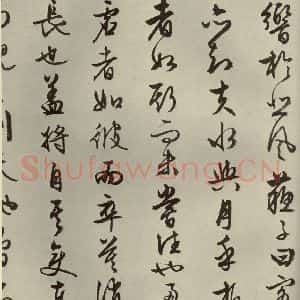 響於悲風蘇子曰客
亦知夫水與月乎逝
者如斯而未嘗往也盈
虛者如彼而卒莫消
長也蓋將自其變
Shufawang.CN